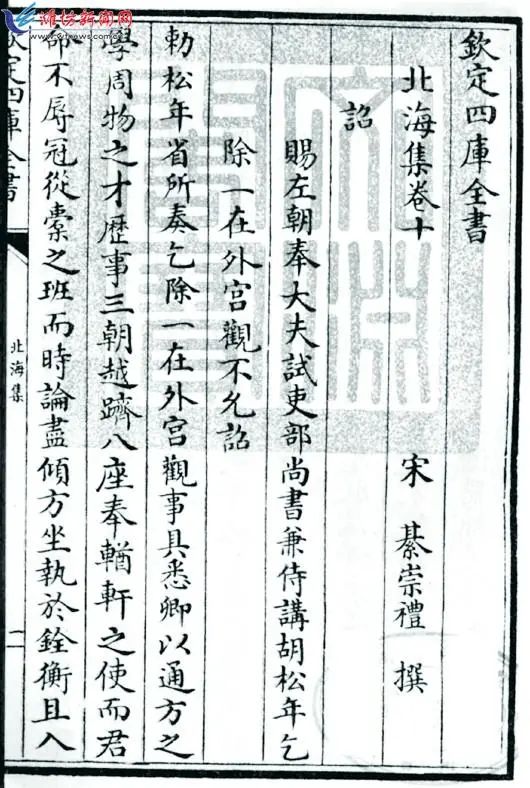 欽定四庫全書
北海集卷十
宋 綦崇禮 撰
詔
賜左朝奉大夫試吏部尚書兼侍講胡松年乞
除一在外宮觀不允詔
勅松年省所奏乞除一在外宮觀事具悉卿以通方之
學周物之才歷事三朝越躋八座奉輶軒之使而君
命不辱冠從橐之班而時論盡傾方坐執於銓衡且入
欽定四庫全書
北海集
一
濰坊新聞網
www.wfnews.com.cn